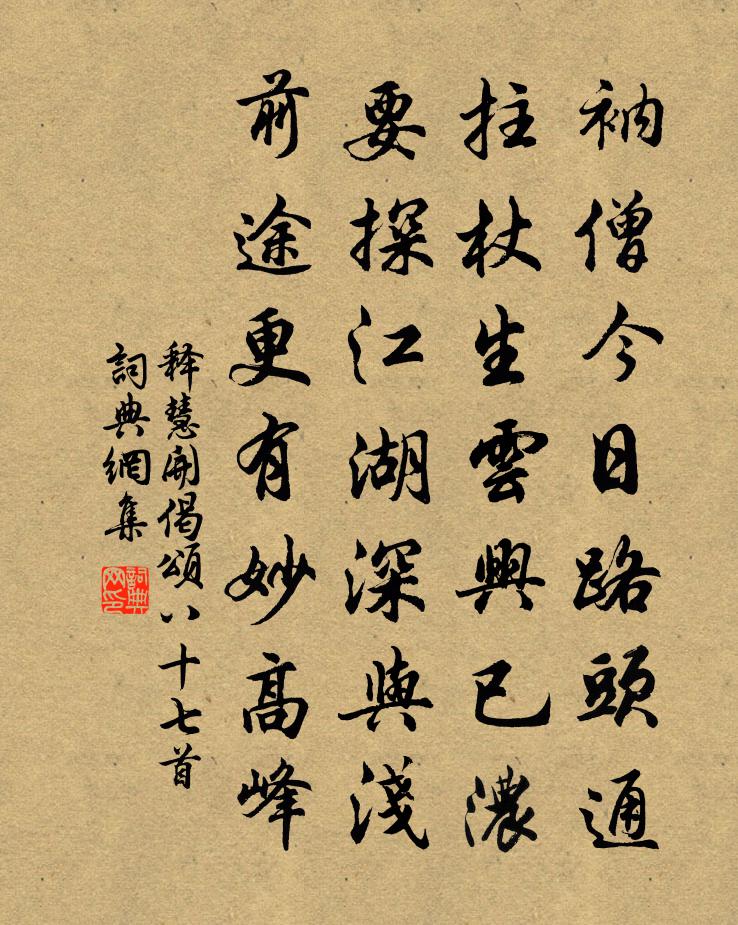 衲僧今日路頭通
拄杖生雲興已濃
要探江湖深與淺
前途更有妙高峰
釋慧開偈頌八十七首
詞典網集
詞典网印